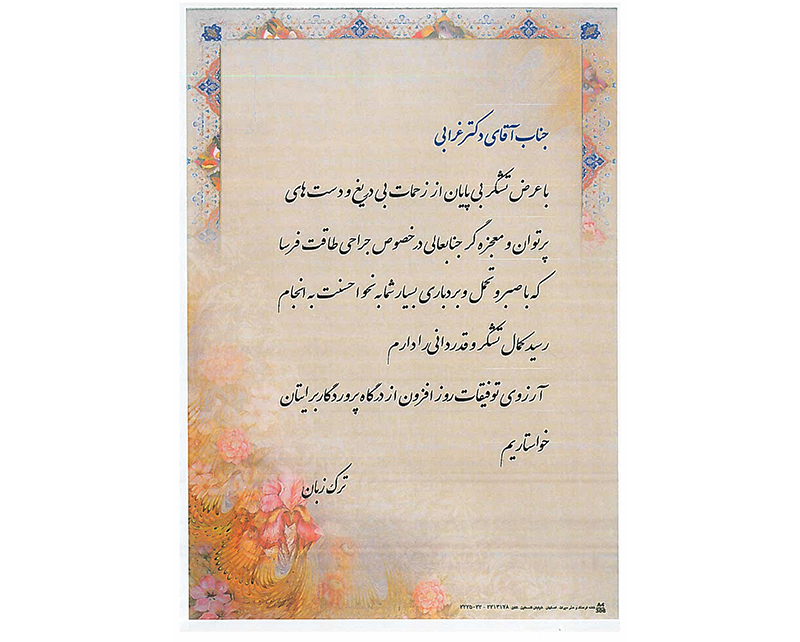 جناب آقای دکتر غرابی
با عرض تشکر بی پایان از زحمات بی دریغ و دست های
پرتوان و معجزه گر جنابعالی در خصوص جراحی طاقت فرسا
که با صبر و تحمل و بردباری بسیار شما به نحو احسنت به انجام
رسید کمال تشکر و قدردانی را دارم
آرزوی توفیقات روز افزون از درگاه پروردگار برایتان
خواستاریم
ترک زبان
خانه فرهنگ و هنر میراث اصفهان خیابان فلسطین تلفن ۲۲۱۳۱۷۸ - ۲۲۲۵۰۲۲